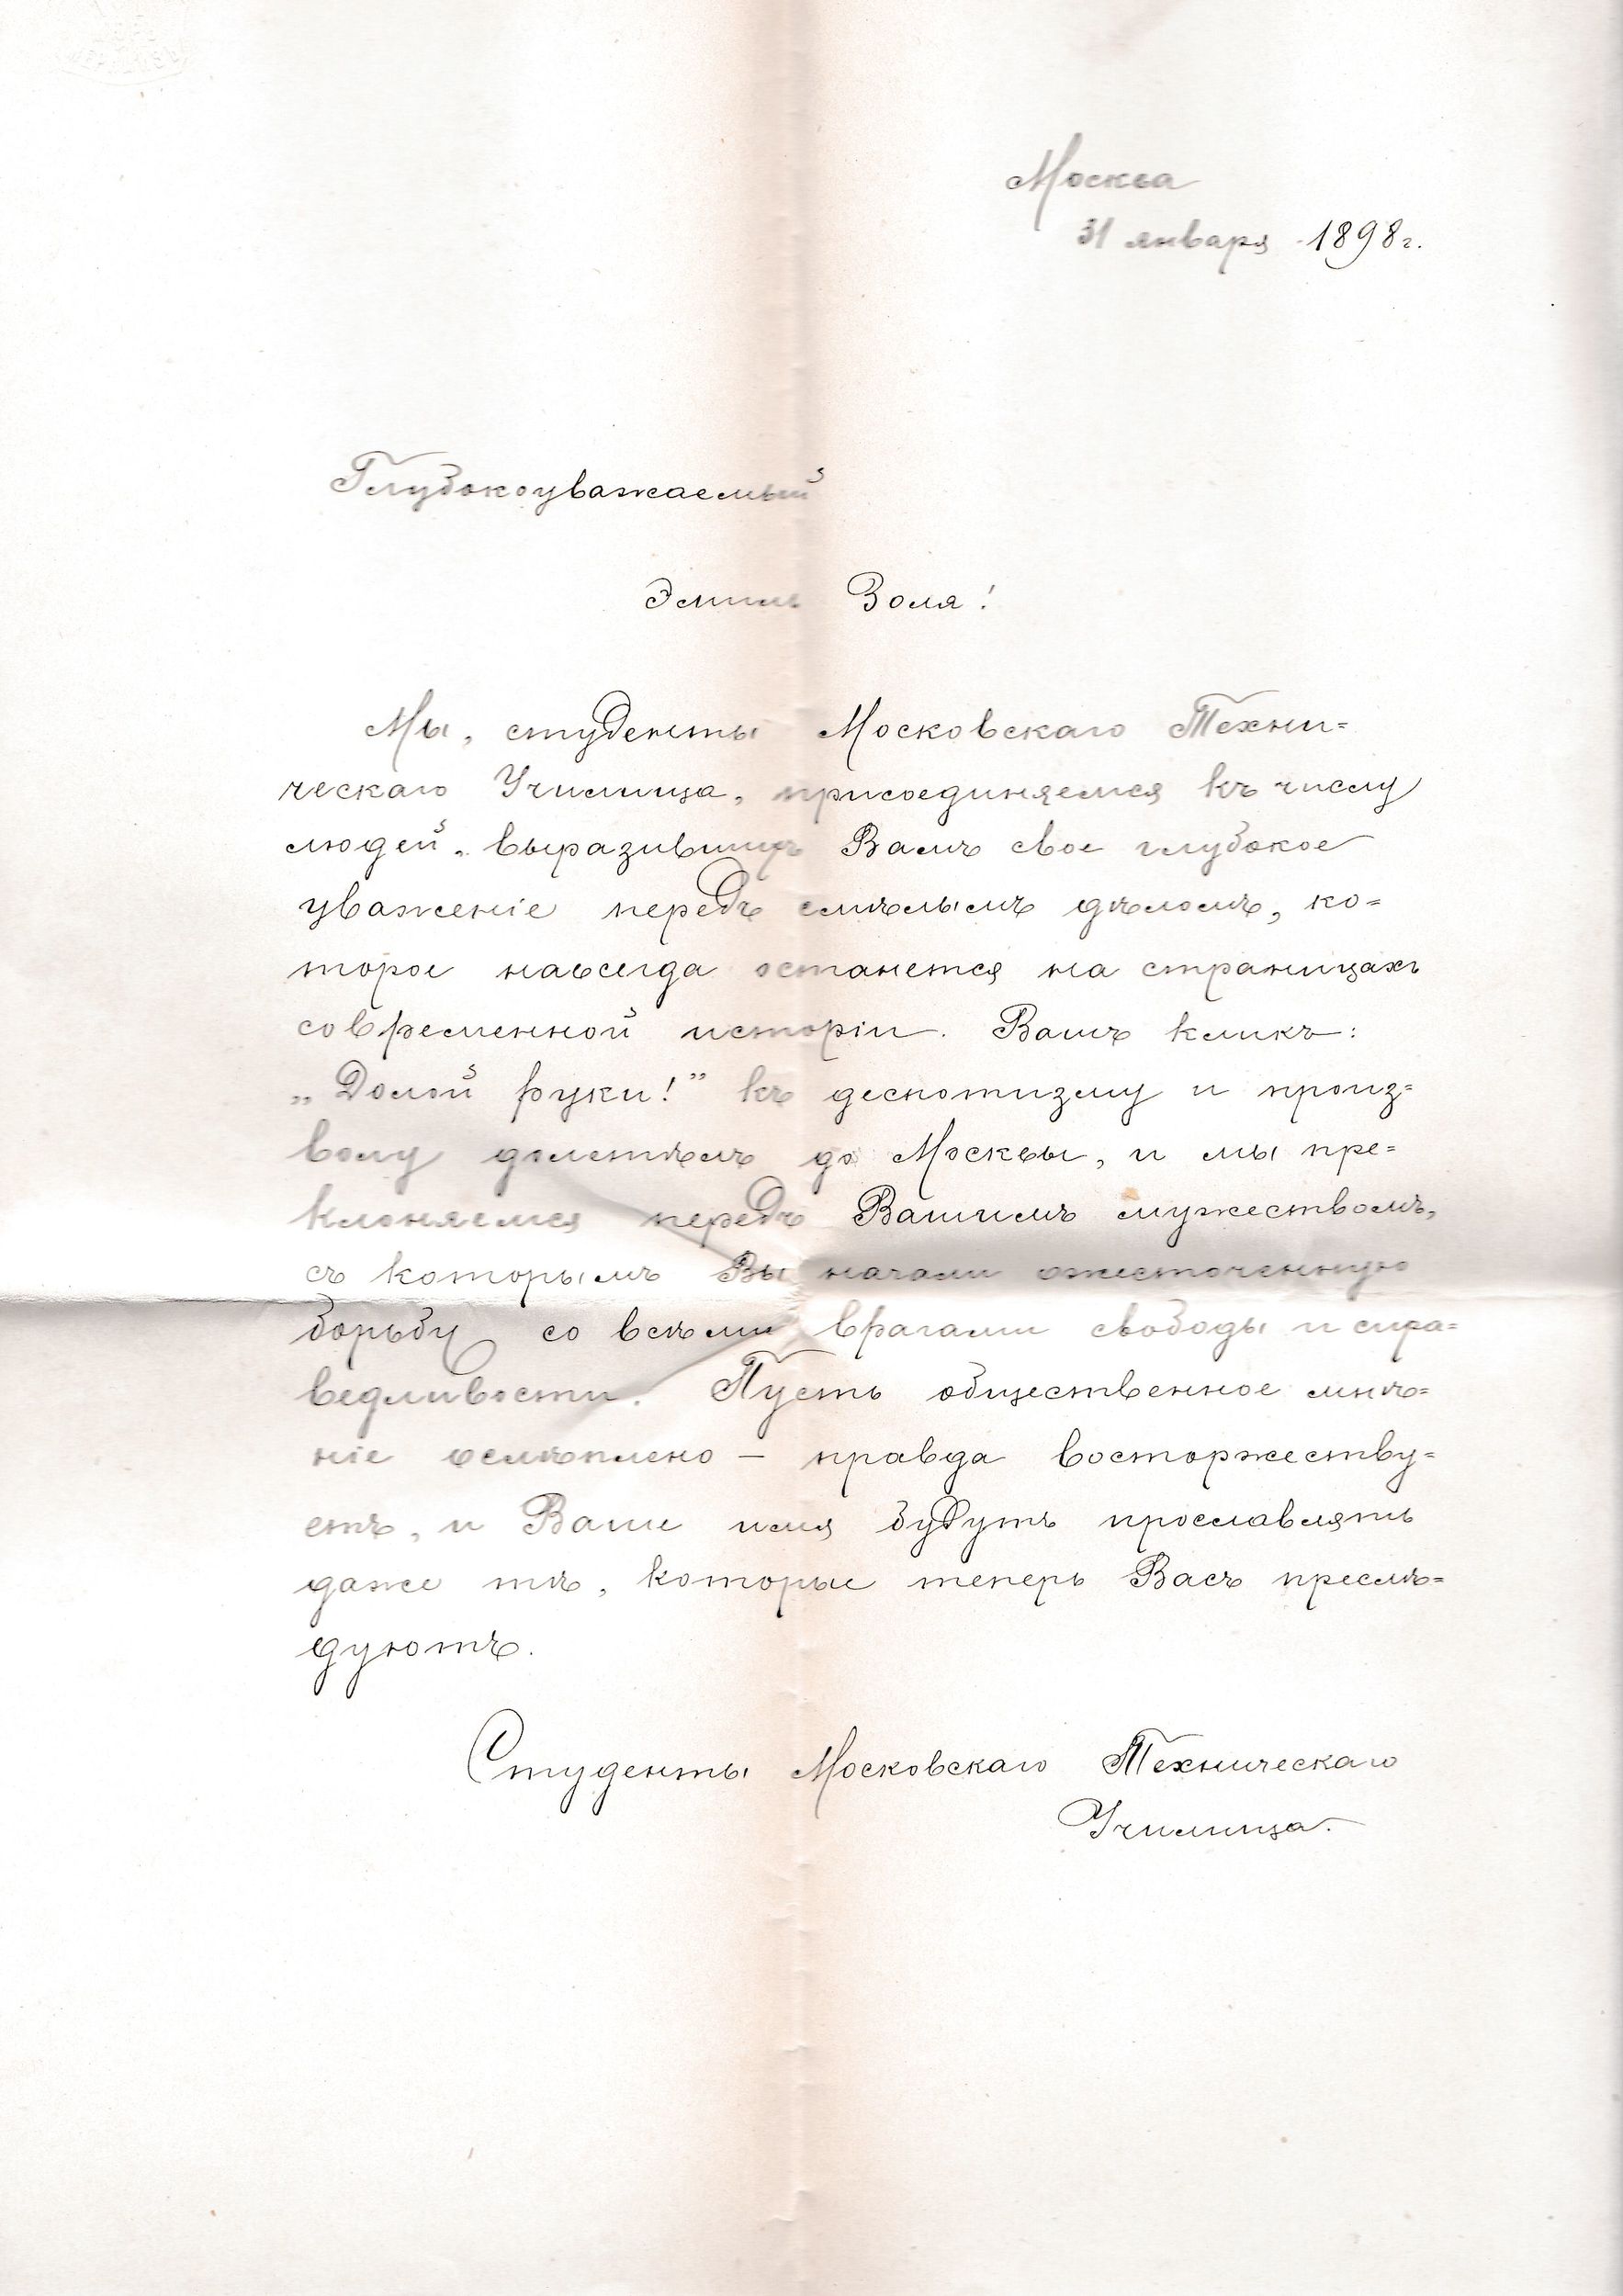 Москва
31 января 1898 г.
Глубокоуважаемый
Эмиль Золя!
Мы, студенты Московскаго Техни=
ческаго Училища, присоединяемся къ числу
людей, выразившихъ Вамъ свое глубокое
уваженіе передъ смѣлымъ дѣломъ, ко=
торое навсегда останется на страницахъ
современной исторіи. Вашъ кликъ:
„Долой руки!” къ деспотизму и произ=
волу долетѣлъ до Москвы, и мы пре=
клоняемся передъ Вашимъ мужествомъ,
съ которымъ Вы начали ожесточенную
борьбу со всѣми врагами свободы и спра=
ведливости. Пусть общественное мнѣ=
ніе ослѣплено — правда восторжеству=
етъ, и Ваше имя будутъ прославлять
даже тѣ, которые теперь Васъ преслѣ=
дуютъ.
Студенты Московскаго Техническаго
Училища.